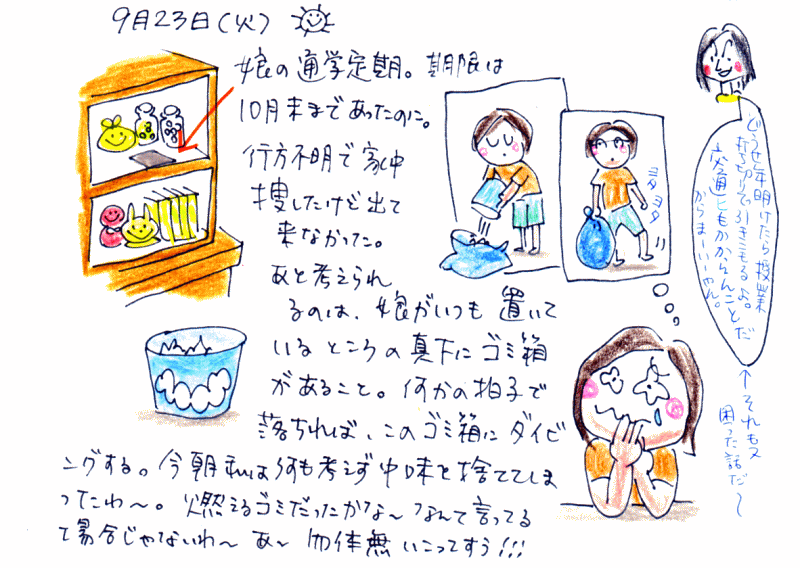 9月23日(火)
娘の通学定期。期限は
10月末まであったのに。
行方不明で家中
捜したけど出て
来なかった。
あと考えられ
るのは、娘がいつも置いて
いるところの真下にゴミ箱
があること。何かの拍子で
落ちれば、このゴミ箱にダイビ
ングする。今朝私は何も考えず中味を捨ててしま
ったわ〜。燃えるゴミだったかな〜なんて言ってる
て場合じゃないわ〜あ〜勿体無いこってすう!!!
ヨタヨタ
どうせ年明けたら授業
打ち切りで引きこもるよ。
交通ヒもかからんことだ
からまーいーやん。
↑それも又
困った話だ〜